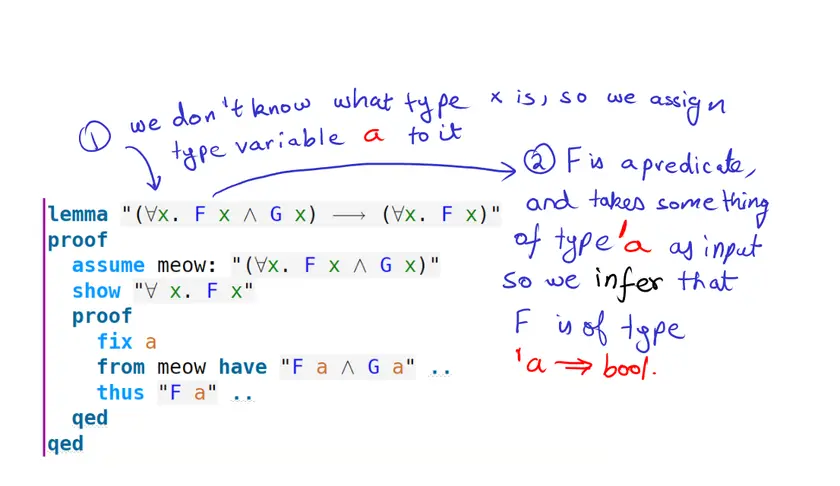 ① we don't know what type x is, so we assign
type variable a to it
② F is a predicate,
and takes something
of type 'a as input
so we infer that
F is of type
'a ⇒ bool.
lemma "(∀x. F x ∧ G x) ⟶ (∀x. F x)"
proof
assume meow: "(∀x. F x ∧ G x)"
show "∀ x. F x"
proof
fix a
from meow have "F a ∧ G a" ..
thus "F a" ..
qed
qed